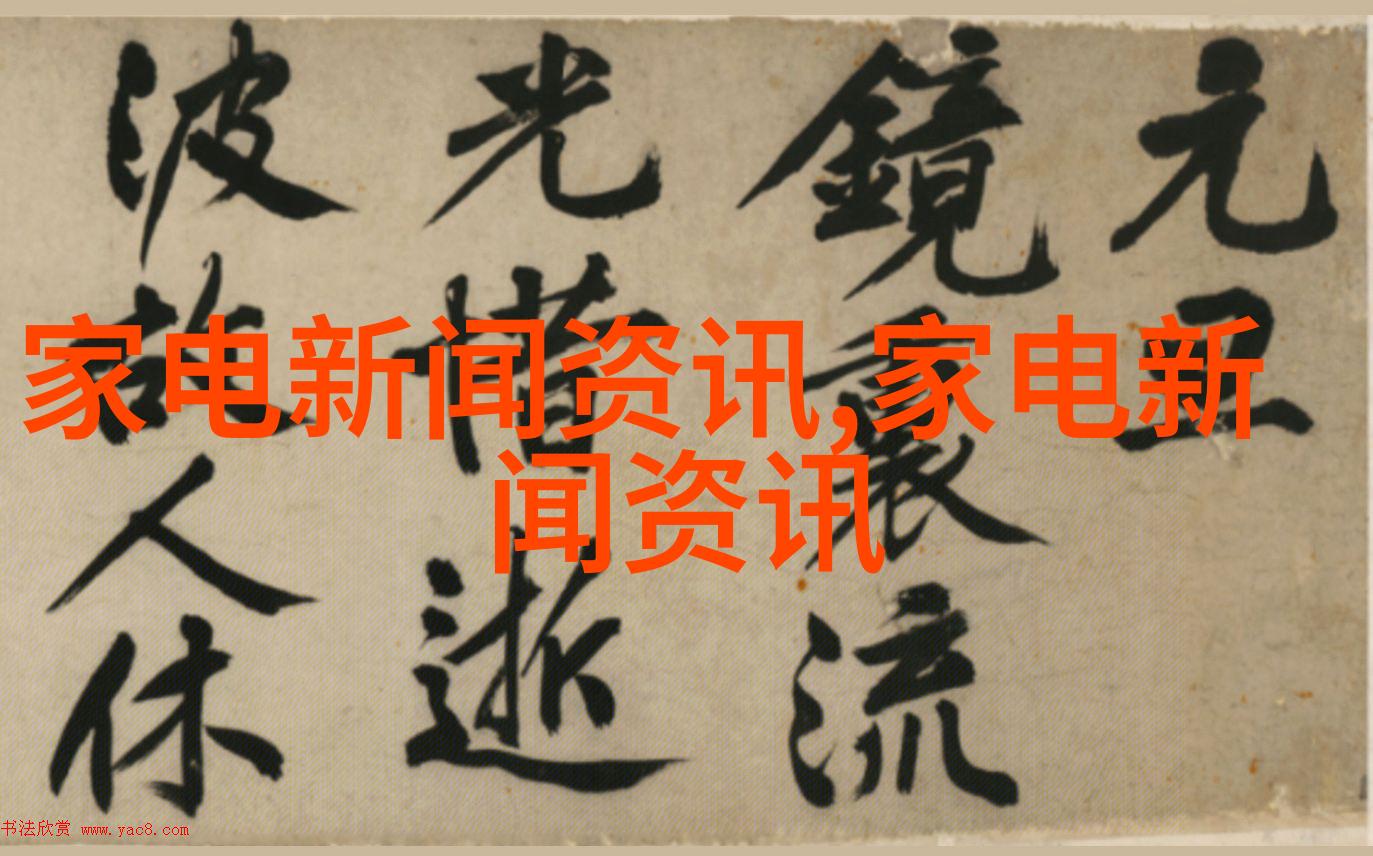 元丑
鏡裏流
光惜逝
波故人休
家电新闻资讯,家电新
闻资讯
书法欣赏 www.yac8.com